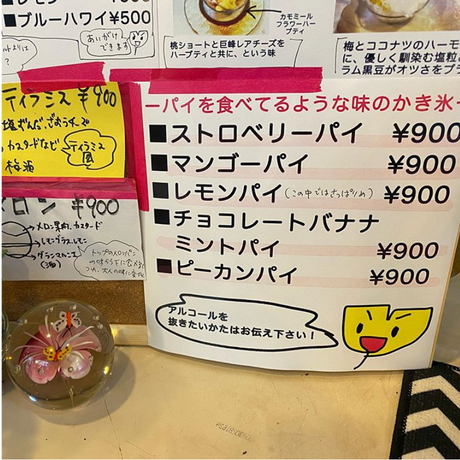 レモン ¥500
■ブルーハワイ¥500
あいがけ
できます
カモミール
フラワーハー
ブティ
桃ショートと巨峰レアチーズを
ハーブティと共に、という味
梅とココナツのハーモ
に、優しく馴染む塩粒と
ラム黒豆がオツさをプラ
ティラミス ¥900
カスタードなど
ティラミス
風
梅酒
メロン ¥900
メロン果肉、カスタード
ーパイを食べてるような味のかき氷ー
■ストロベリーパイ ¥900
■マンゴーパイ ¥900
■レモンパイ(この中ではさっぱりめ) ¥900
■チョコレートバナナ
ミントパイ ¥900
■ピーカンパイ ¥900
アルコールを
抜きたいかたはお伝え下さい！